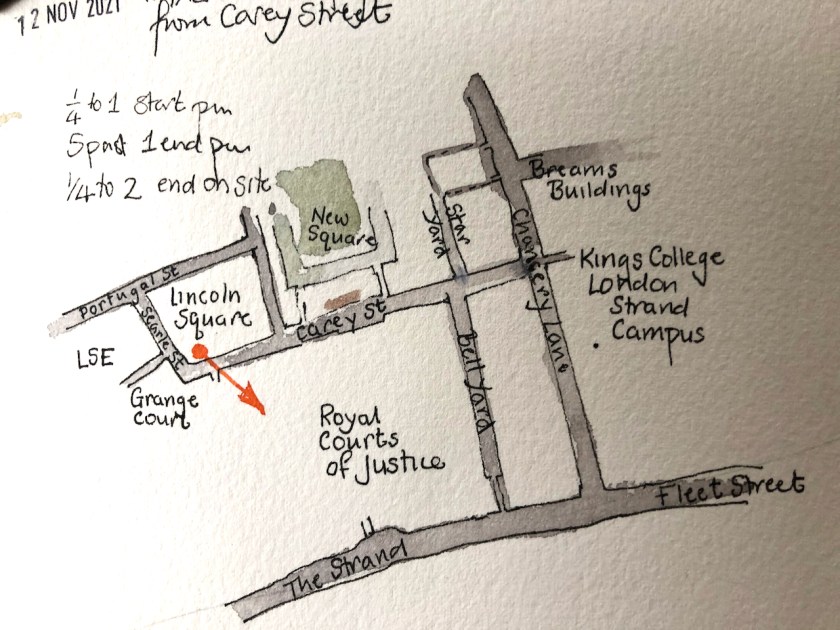 12 NOV 2021
from Carey Street
1/4 to 1 Start pm
5 past 1 end pm
1/4 to 2 end on site
New
Square
Breams
Buildings
Star
Yard
Chancery Lane
Kings College
London
Strand
Campus
Portugal St
Lincoln
Square
Serle St
Carey St
LSE
Grange
Court
Bell Yard
Royal
Courts
of Justice
Fleet Street
The Strand